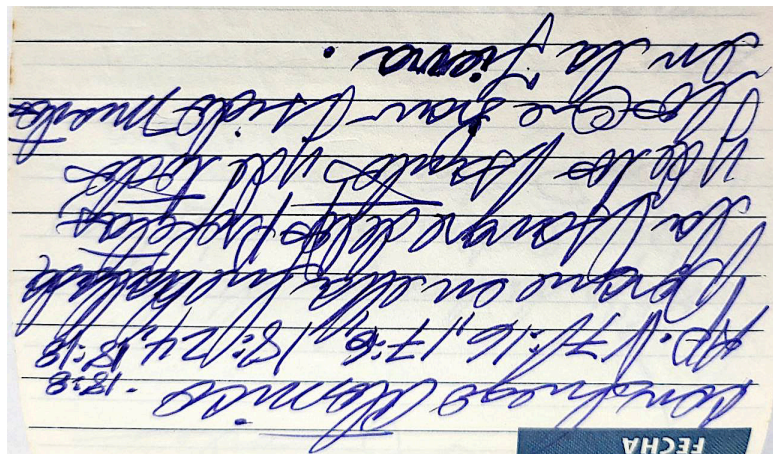 FECHA
con fuego Atomico - 18:8
Ap. 17:16, 17:6, 18:24, 18:18
Porque en ella fue hallada
la Sangre de los profetas
y de los Santos y de todos
los que han sido muertos
en la Tierra.